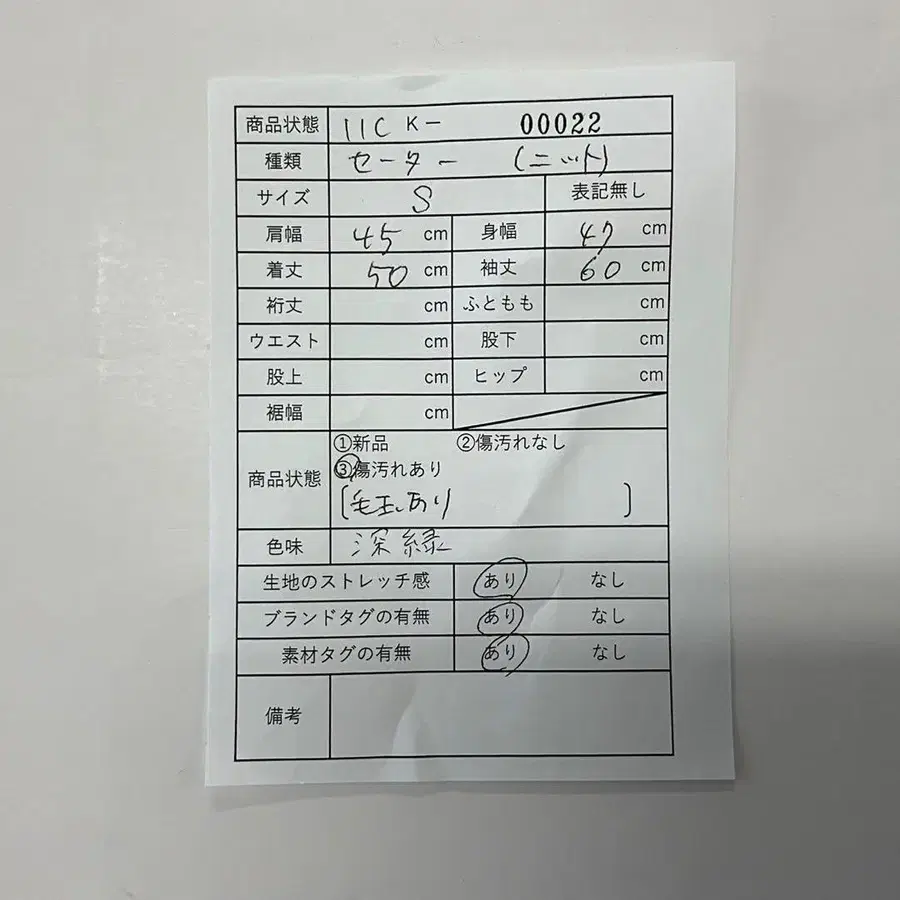 商品状態 11C K- 00022
種類 セーター (ニット)
サイズ S 表記無し
肩幅 45 cm 身幅 47 cm
着丈 50 cm 袖丈 60 cm
裄丈 cm ふともも cm
ウエスト cm 股下 cm
股上 cm ヒップ cm
裾幅 cm
商品状態 ①新品 ②傷汚れなし
③傷汚れあり
[毛玉あり ]
色味 深緑
生地のストレッチ感 あり なし
ブランドタグの有無 あり なし
素材タグの有無 あり なし
備考